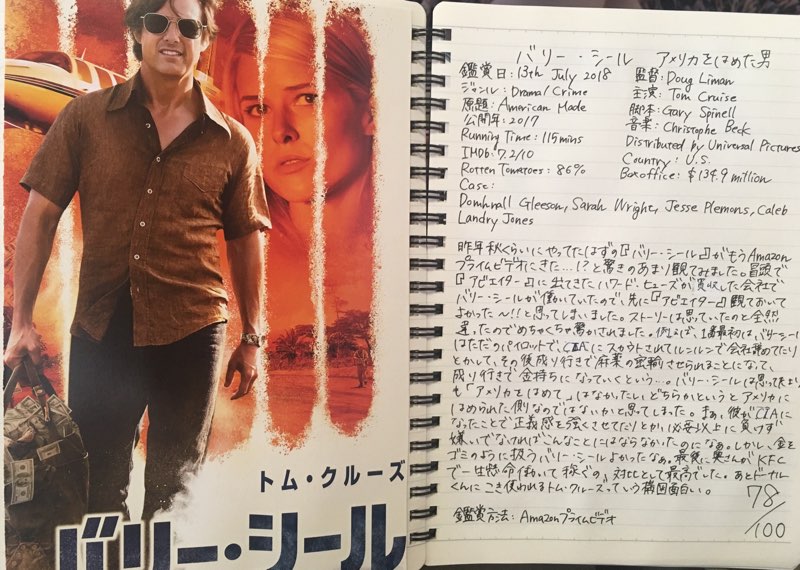 トム・クルーズ
バリー・シール
バリー・シール　アメリカをはめた男
鑑賞日:13th July 2018
ジャンル:Drama/Crime
原題:American Made
公開年:2017
Running Time:115mins
IMDb:7.2/10
Rotten Tomatoes:86%
監督:Doug Liman
主演:Tom Cruise
脚本:Gary Spinell
音楽:Christophe Beck
Distributed by Universal Pictures
Country:U.S.
Box office:$134.9 million
Cast:
Domhnall Gleeson, Sarah Wright, Jesse Plemons, Caleb
Landry Jones
昨年秋くらいにやってたはずの『バリー・シール』がもうAmazon
プライムビデオにきた…!?と驚きのあまり観てみました。冒頭で
『アビエイター』に出てきたハワード・ヒューズが買収した会社で
バリー・シールが働いていたので、先に『アビエイター』観ておいて
よかった〜!!と思ってしまいました。ストーリーは思っていたのと全然
違ったのでめちゃくちゃ驚かされました。例えば、1番最初はバリー・シール
はただのパイロットで、CIAにスカウトされてルンルンで会社辞めてたり
とかして、その後成り行きで麻薬の密輸させられることになって、
成り行きで金持ちになっていくという…。バリー・シールは思ってたより
も「アメリカをはめて」はなかったし、どちらかというとアメリカに
はめられた側なのではないかと思ってしまった。まぁ、彼がCIAに
なったことで正義感を強くさせてたりとか、必要以上に負けず
嫌いでなければこんなことにはならなかったのになぁ。しかし、金を
ゴミのように扱うバリー・シールよかったなぁ。最後に奥さんがKFC
で一生懸命働いて稼ぐの、対比として最高でした。あとドーナル
くんにこき使われるトム・クルーズっていう構図面白い。
78/100
鑑賞方法:Amazonプライムビデオ